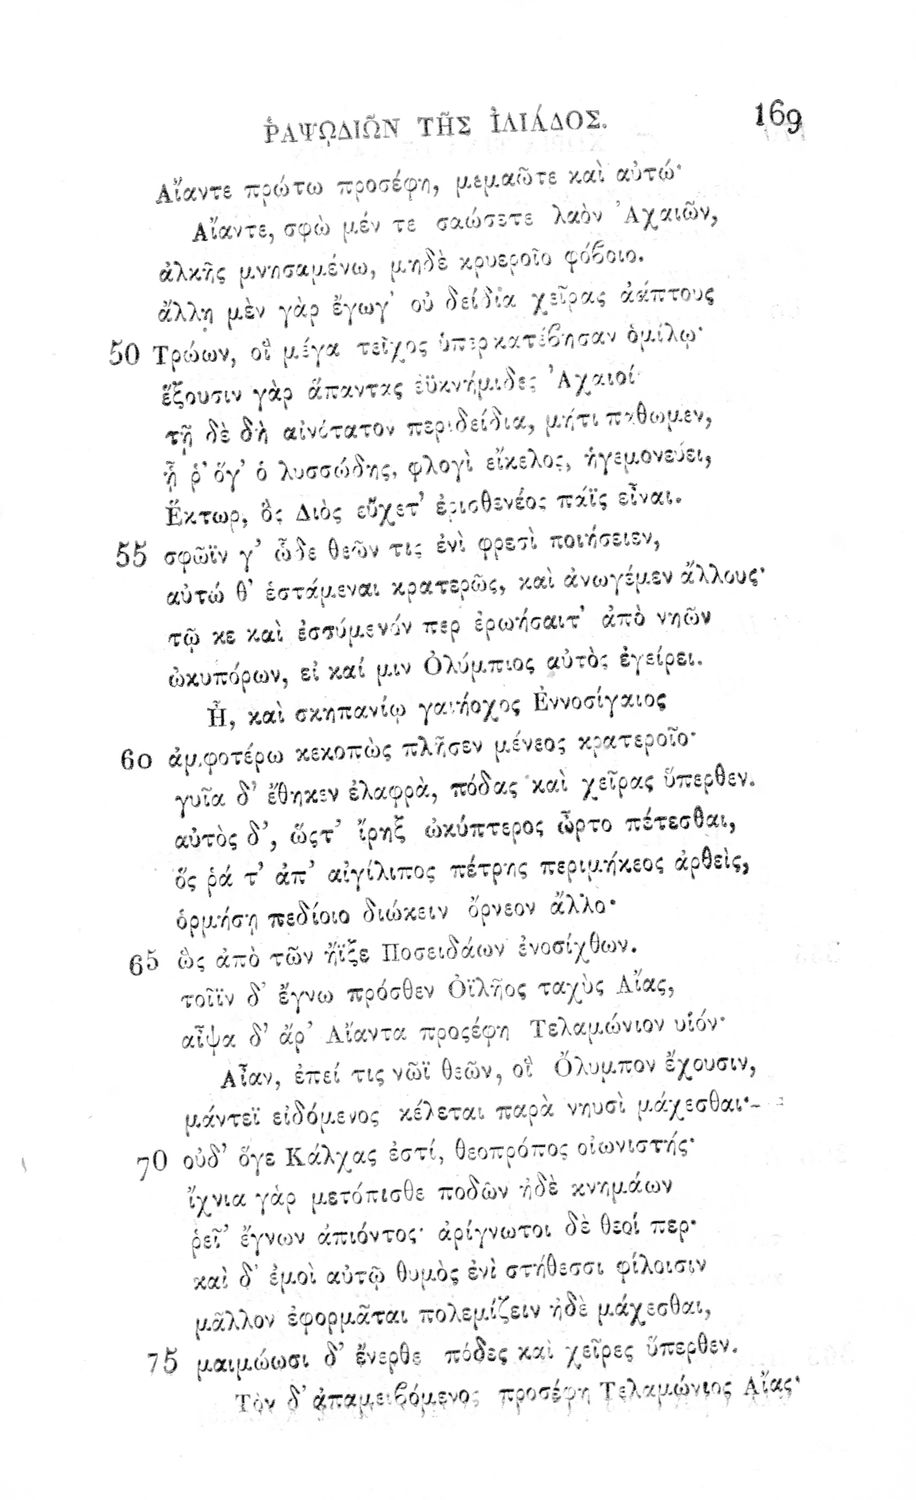 ῬΑΨΩΔΙΩ͂Ν ΤΗ͂Σ ἸΛΙΆΔΟΣ. 169
Αἴαντε πρώτω προσέφη, μεμαῶτε καὶ αὐτώ·
Αἴαντε, σφὼ μέν τε σαώσετε λαὸν Ἀχαιῶν,
ἀλκῆς μνησαμένω, μηδὲ κρυεροῖο φόβοιο.
ἄλλῃ μὲν γὰρ ἔγωγ' οὐ δείδια χεῖρας ἀάπτους
50 Τρώων, οἳ μέγα τεῖχος ὑπερκατέβησαν ὁμίλῳ·
ἕξουσιν γὰρ ἅπαντας ἐϋκνήμιδες Ἀχαιοί·
τῇ δὲ δὴ αἰνότατον περιδείδια, μήτι πάθωμεν,
ᾗ ῥ' ὅγ' ὁ λυσσώδης, φλογὶ εἴκελος, ἡγεμονεύει,
Ἕκτωρ, ὃς Διὸς εὔχετ' ἐρισθενέος πάϊς εἶναι.
55 σφῶϊν γ' ὧδε θεῶν τις ἐνὶ φρεσὶ ποιήσειεν,
αὐτώ θ' ἑστάμεναι κρατερῶς, καὶ ἀνωγέμεν ἄλλους·
τῷ κε καὶ ἐσσύμενόν περ ἐρωήσαιτ' ἀπὸ νηῶν
ὠκυπόρων, εἰ καί μιν Ὀλύμπιος αὐτὸς ἐγείρει.
Ἦ, καὶ σκηπανίῳ γαιήοχος Ἐννοσίγαιος
60 ἀμφοτέρω κεκοπὼς πλῆσεν μένεος κρατεροῖο·
γυῖα δ' ἔθηκεν ἐλαφρὰ, πόδας καὶ χεῖρας ὕπερθεν.
αὐτὸς δ', ὥςτ' ἴρηξ ὠκύπτερος ὦρτο πέτεσθαι,
ὅς ῥά τ' ἀπ' αἰγίλιπος πέτρης περιμήκεος ἀρθεὶς,
ὁρμήσῃ πεδίοιο διώκειν ὄρνεον ἄλλο·
65 ὣς ἀπὸ τῶν ἤϊξε Ποσειδάων ἐνοσίχθων.
τοῖϊν δ' ἔγνω πρόσθεν Ὀϊλῆος ταχὺς Αἴας,
αἶψα δ' ἄρ' Αἴαντα προςέφη Τελαμώνιον υἱόν·
Αἶαν, ἐπεί τις νῶϊ θεῶν, οἳ Ὄλυμπον ἔχουσιν,
μάντεϊ εἰδόμενος κέλεται παρὰ νηυσὶ μάχεσθαι·
70 οὐδ' ὅγε Κάλχας ἐστί, θεοπρόπος οἰωνιστής·
ἴχνια γὰρ μετόπισθε ποδῶν ἠδὲ κνημάων
ῥεῖ' ἔγνων ἀπιόντος· ἀρίγνωτοι δὲ θεοί περ·
καὶ δ' ἐμοὶ αὐτῷ θυμὸς ἐνὶ στήθεσσι φίλοισιν
μᾶλλον ἐφορμᾶται πολεμίζειν ἠδὲ μάχεσθαι,
75 μαιμώωσι δ' ἔνερθε πόδες καὶ χεῖρες ὕπερθεν.
Τὸν δ' ἀπαμειβόμενος προσέφη Τελαμώνιος Αἴας·